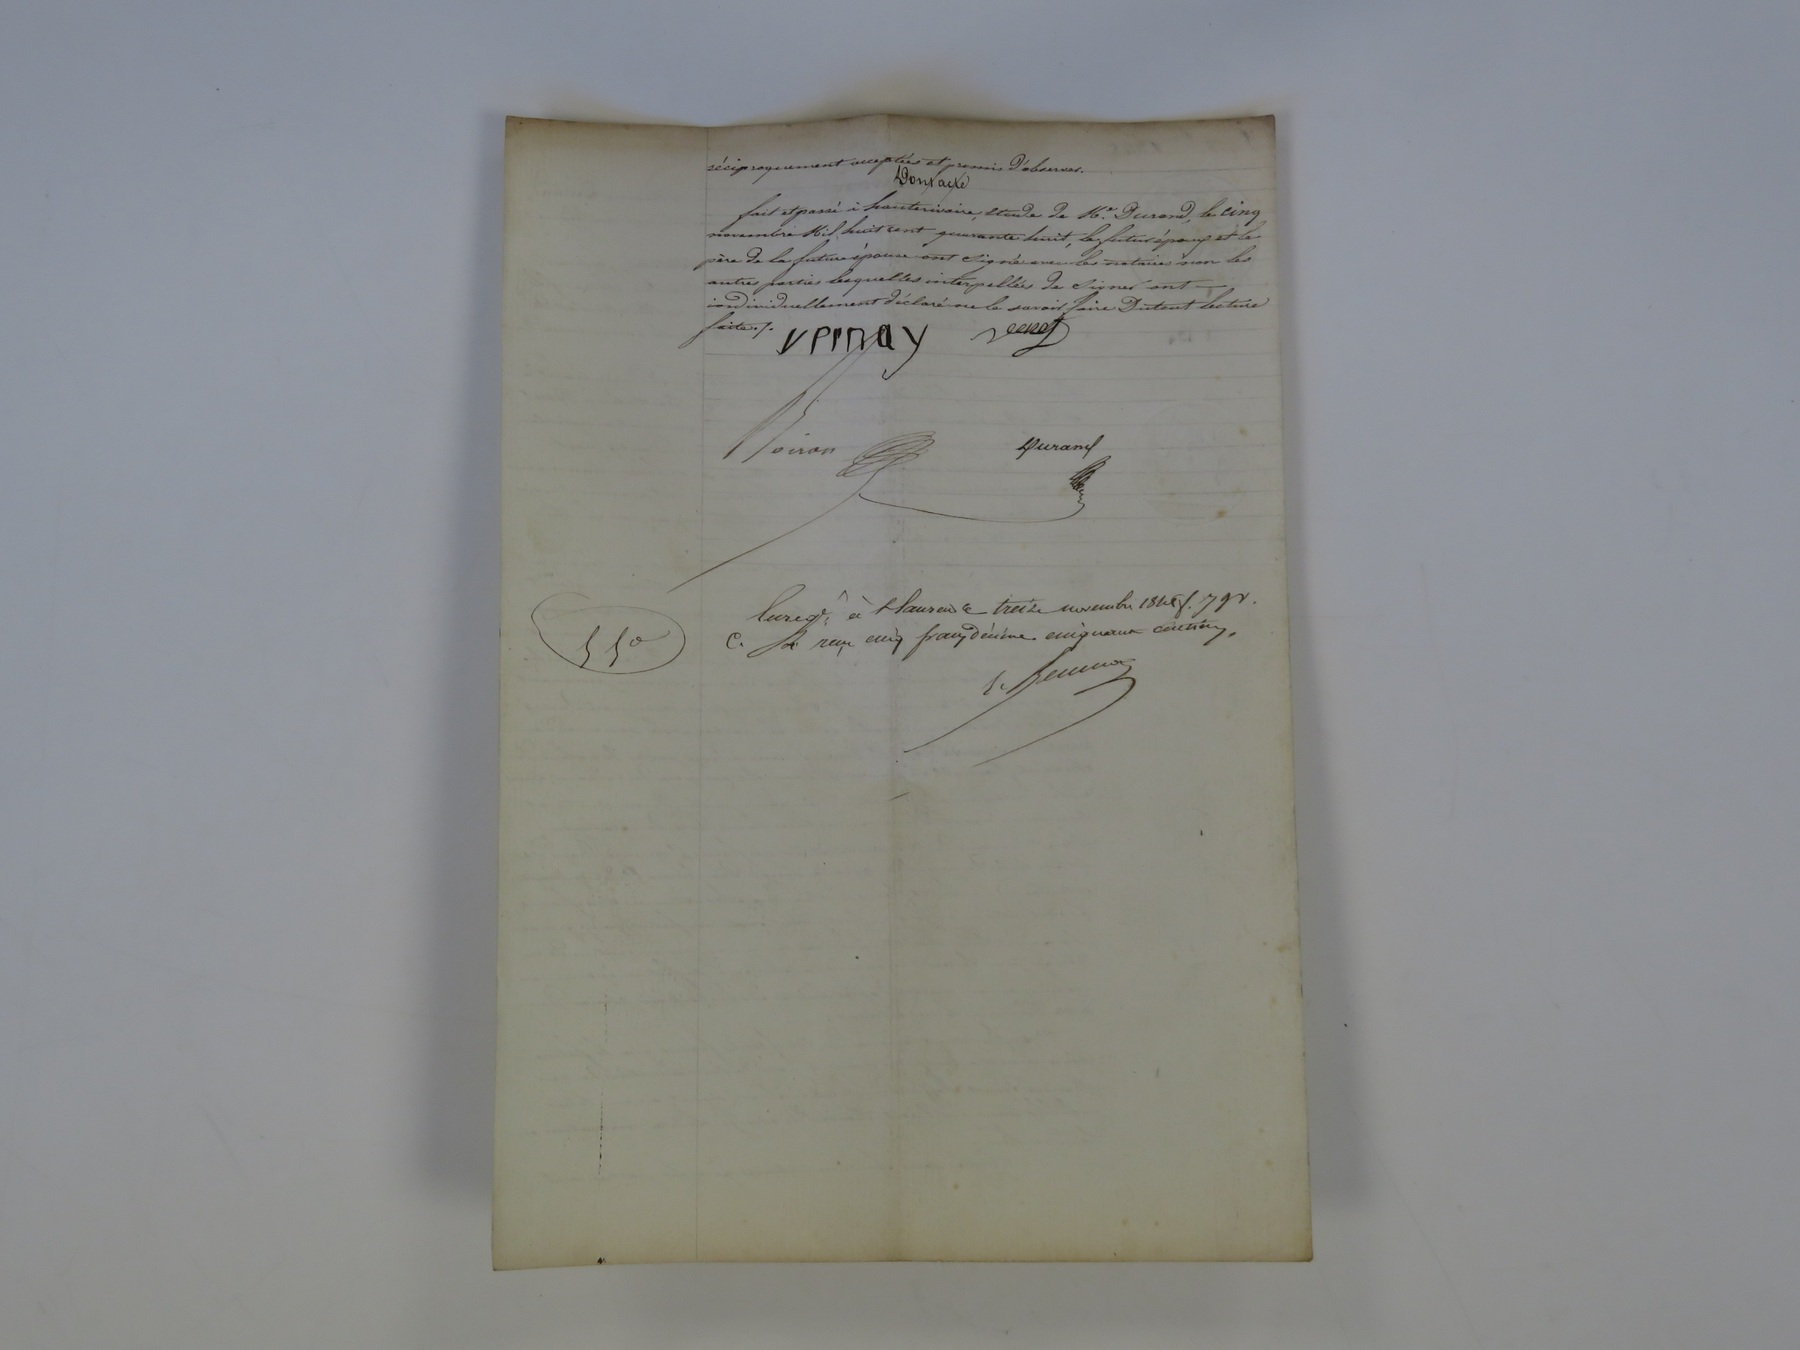 réciproquement acceptées et promis d'observer.
Dont acte
fait et passé à hauterivoire, étude de Me. Durand, le cinq
novembre Mil huit cent quarante huit, le futur époux et le
père de la future épouse ont signé avec les notaires non les
autres parties lesquelles interpellées de signer ont
individuellement déclaré ne le savoir faire Dutout lecture
faite./.
Vernay
Durand
à St Laurent le treize novembre 1848 f. 79 v.
C. reçu cinq francs décime cinquante centimes